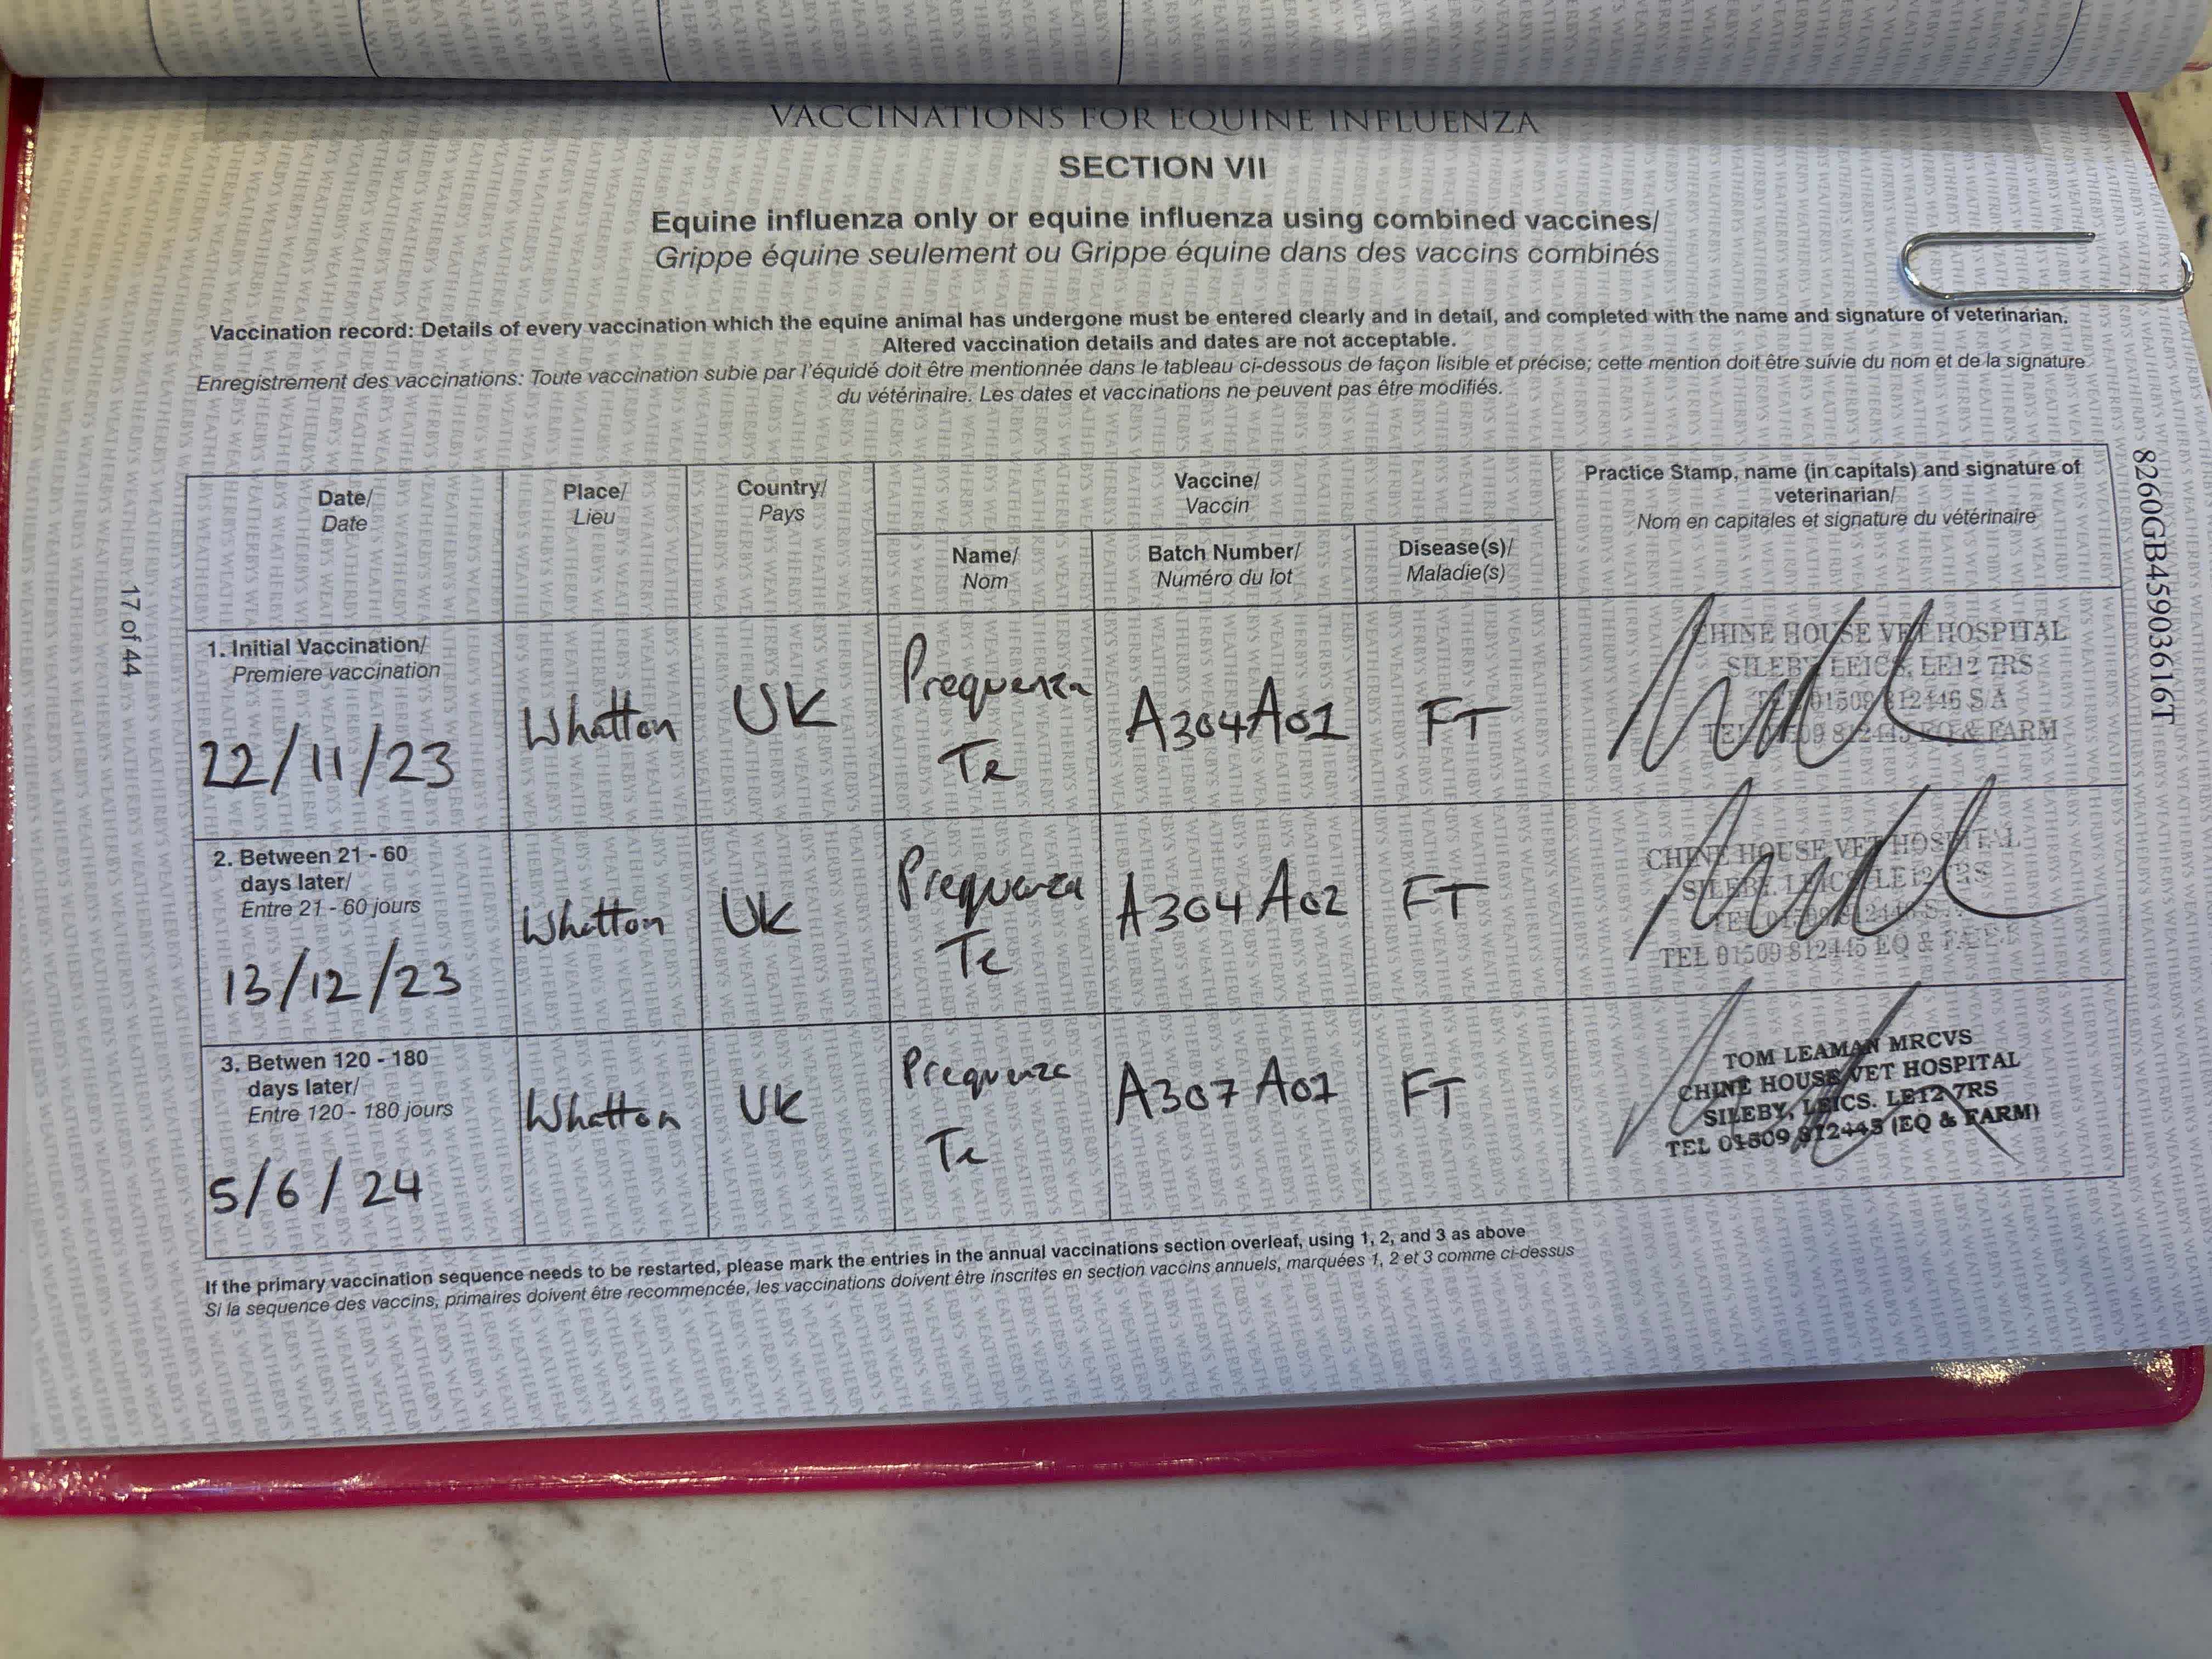 VACCINATIONS FOR EQUINE INFLUENZA
SECTION VII
Equine influenza only or equine influenza using combined vaccines/
Grippe équine seulement ou Grippe équine dans des vaccins combinés
Vaccination record: Details of every vaccination which the equine animal has undergone must be entered clearly and in detail, and completed with the name and signature of veterinarian.
Altered vaccination details and dates are not acceptable.
Enregistrement des vaccinations: Toute vaccination subie par l'équidé doit être mentionnée dans le tableau ci-dessous de façon lisible et précise; cette mention doit être suivie du nom et de la signature
du vétérinaire. Les dates et vaccinations ne peuvent pas être modifiés.
Date/
Date
Place/
Lieu
Country/
Pays
Vaccine/
Vaccin
Practice Stamp, name (in capitals) and signature of
veterinarian/
Nom en capitales et signature du vétérinaire
Name/
Nom
Batch Number/
Numéro du lot
Disease(s)/
Maladie(s)
1. Initial Vaccination/
Premiere vaccination
22/11/23
Whatton
UK
Prequenza
Te
A304A01
FT
CHINE HOUSE VET HOSPITAL
SILEBY LEICS, LE12 7RS
TEL 01509 812446 S/A
TEL 01509 812445 EQ & FARM
2. Between 21 - 60
days later/
Entre 21 - 60 jours
13/12/23
Whatton
UK
Prequenza
Te
A304A02
FT
CHINE HOUSE VET HOSPITAL
SILEBY, LEICS, LE12 7RS
TEL 01509 812446 S/A
TEL 01509 812445 EQ & FARM
3. Betwen 120 - 180
days later/
Entre 120 - 180 jours
5/6/24
Whatton
UK
Prequenza
Te
A307A01
FT
TOM LEAMAN MRCVS
CHINE HOUSE VET HOSPITAL
SILEBY, LEICS. LE12 7RS
TEL 01509 812445 (EQ & FARM)
If the primary vaccination sequence needs to be restarted, please mark the entries in the annual vaccinations section overleaf, using 1, 2, and 3 as above
Si la sequence des vaccins, primaires doivent être recommencée, les vaccinations doivent être inscrites en section vaccins annuels, marquées 1, 2 et 3 comme ci-dessus
17 of 44
8260GB45903616T
WEATHERBYS